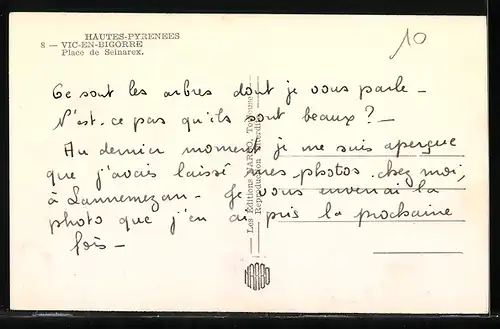 HAUTES-PYRENEES
8 — VIC-EN-BIGORRE
Place de Seinarex.
10
Ce sont les arbres dont je vous parle -
N'est-ce pas qu'ils sont beaux ? -
Au dernier moment je me suis aperçue
que j'avais laissé mes photos chez moi,
à Lannemezan - Je vous enverrai la
photo que j'en ai pris la prochaine
fois -
Les Editions NARBO, Toulouse
Reproduction Interdite
NARBO